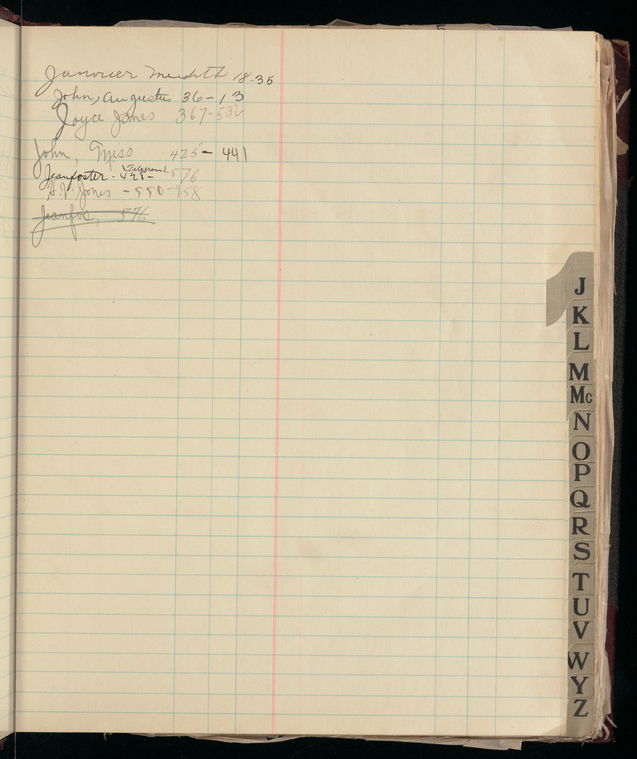 Janvier Meredith 18-35
John, Augustus 36-13
Joyce Jones 367-532
John, Miss 425-441
Jeanfoster - 491- (Telegram) 576
Jones -550-558
Jeanfos, 576
J
K
L
M
Mc
N
O
P
Q
R
S
T
U
V
W
Y
Z